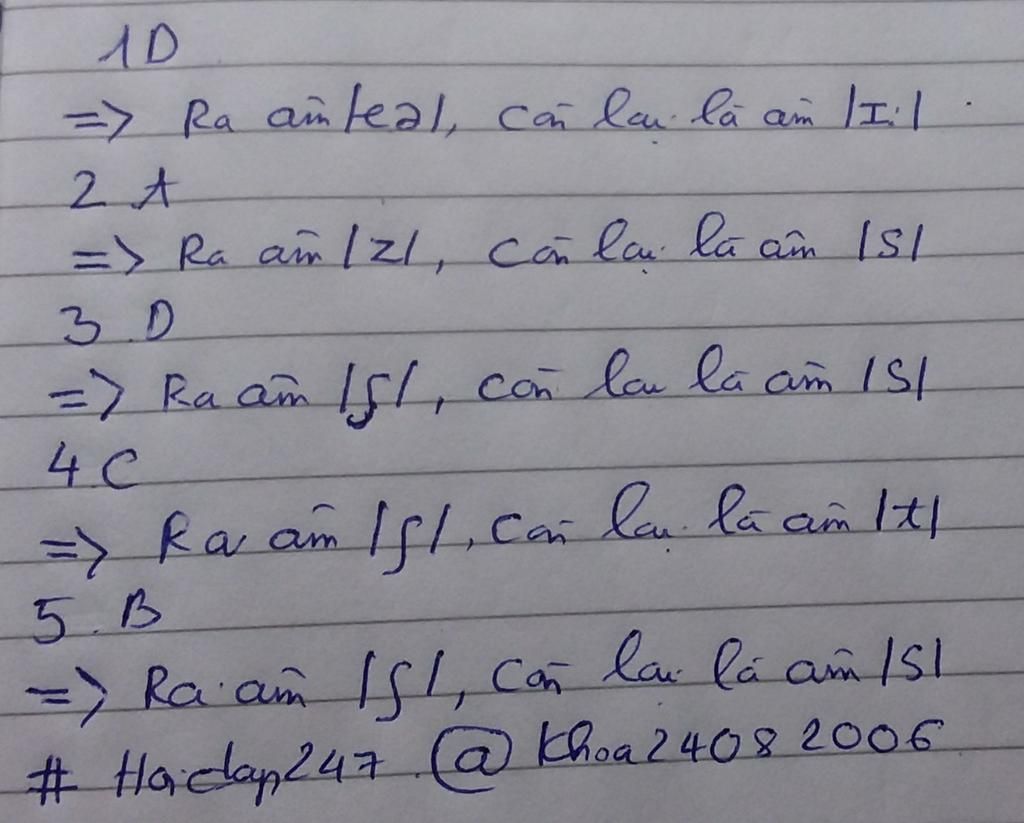 1 D
=> Ra âm /eə/, còn lại là âm /I:/
2 A
=> Ra âm /z/, còn lại là âm /s/
3. D
=> Ra âm /ʃ/, còn lại là âm /s/
4 C
=> Ra âm /ʃ/, còn lại là âm /t/
5. B
=> Ra âm /ʃ/, còn lại là âm /s/
# Hoidap247 @ Khoa24082006